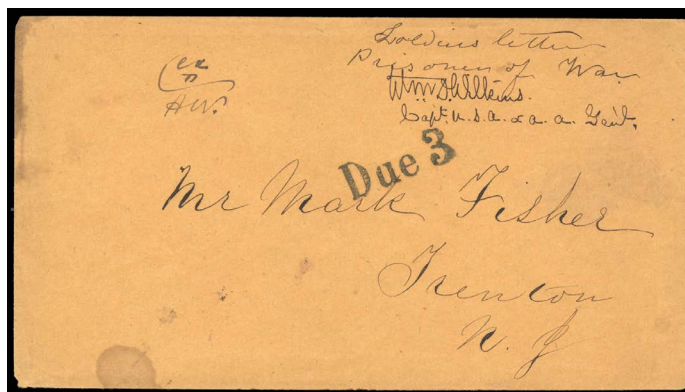 Soldiers letter
Prisoner of War
Wm D. Wilkins.
Capt. U.S.A. & a. a. Genl.
Due 3
Mr Mark Fisher
Trenton
N. J.